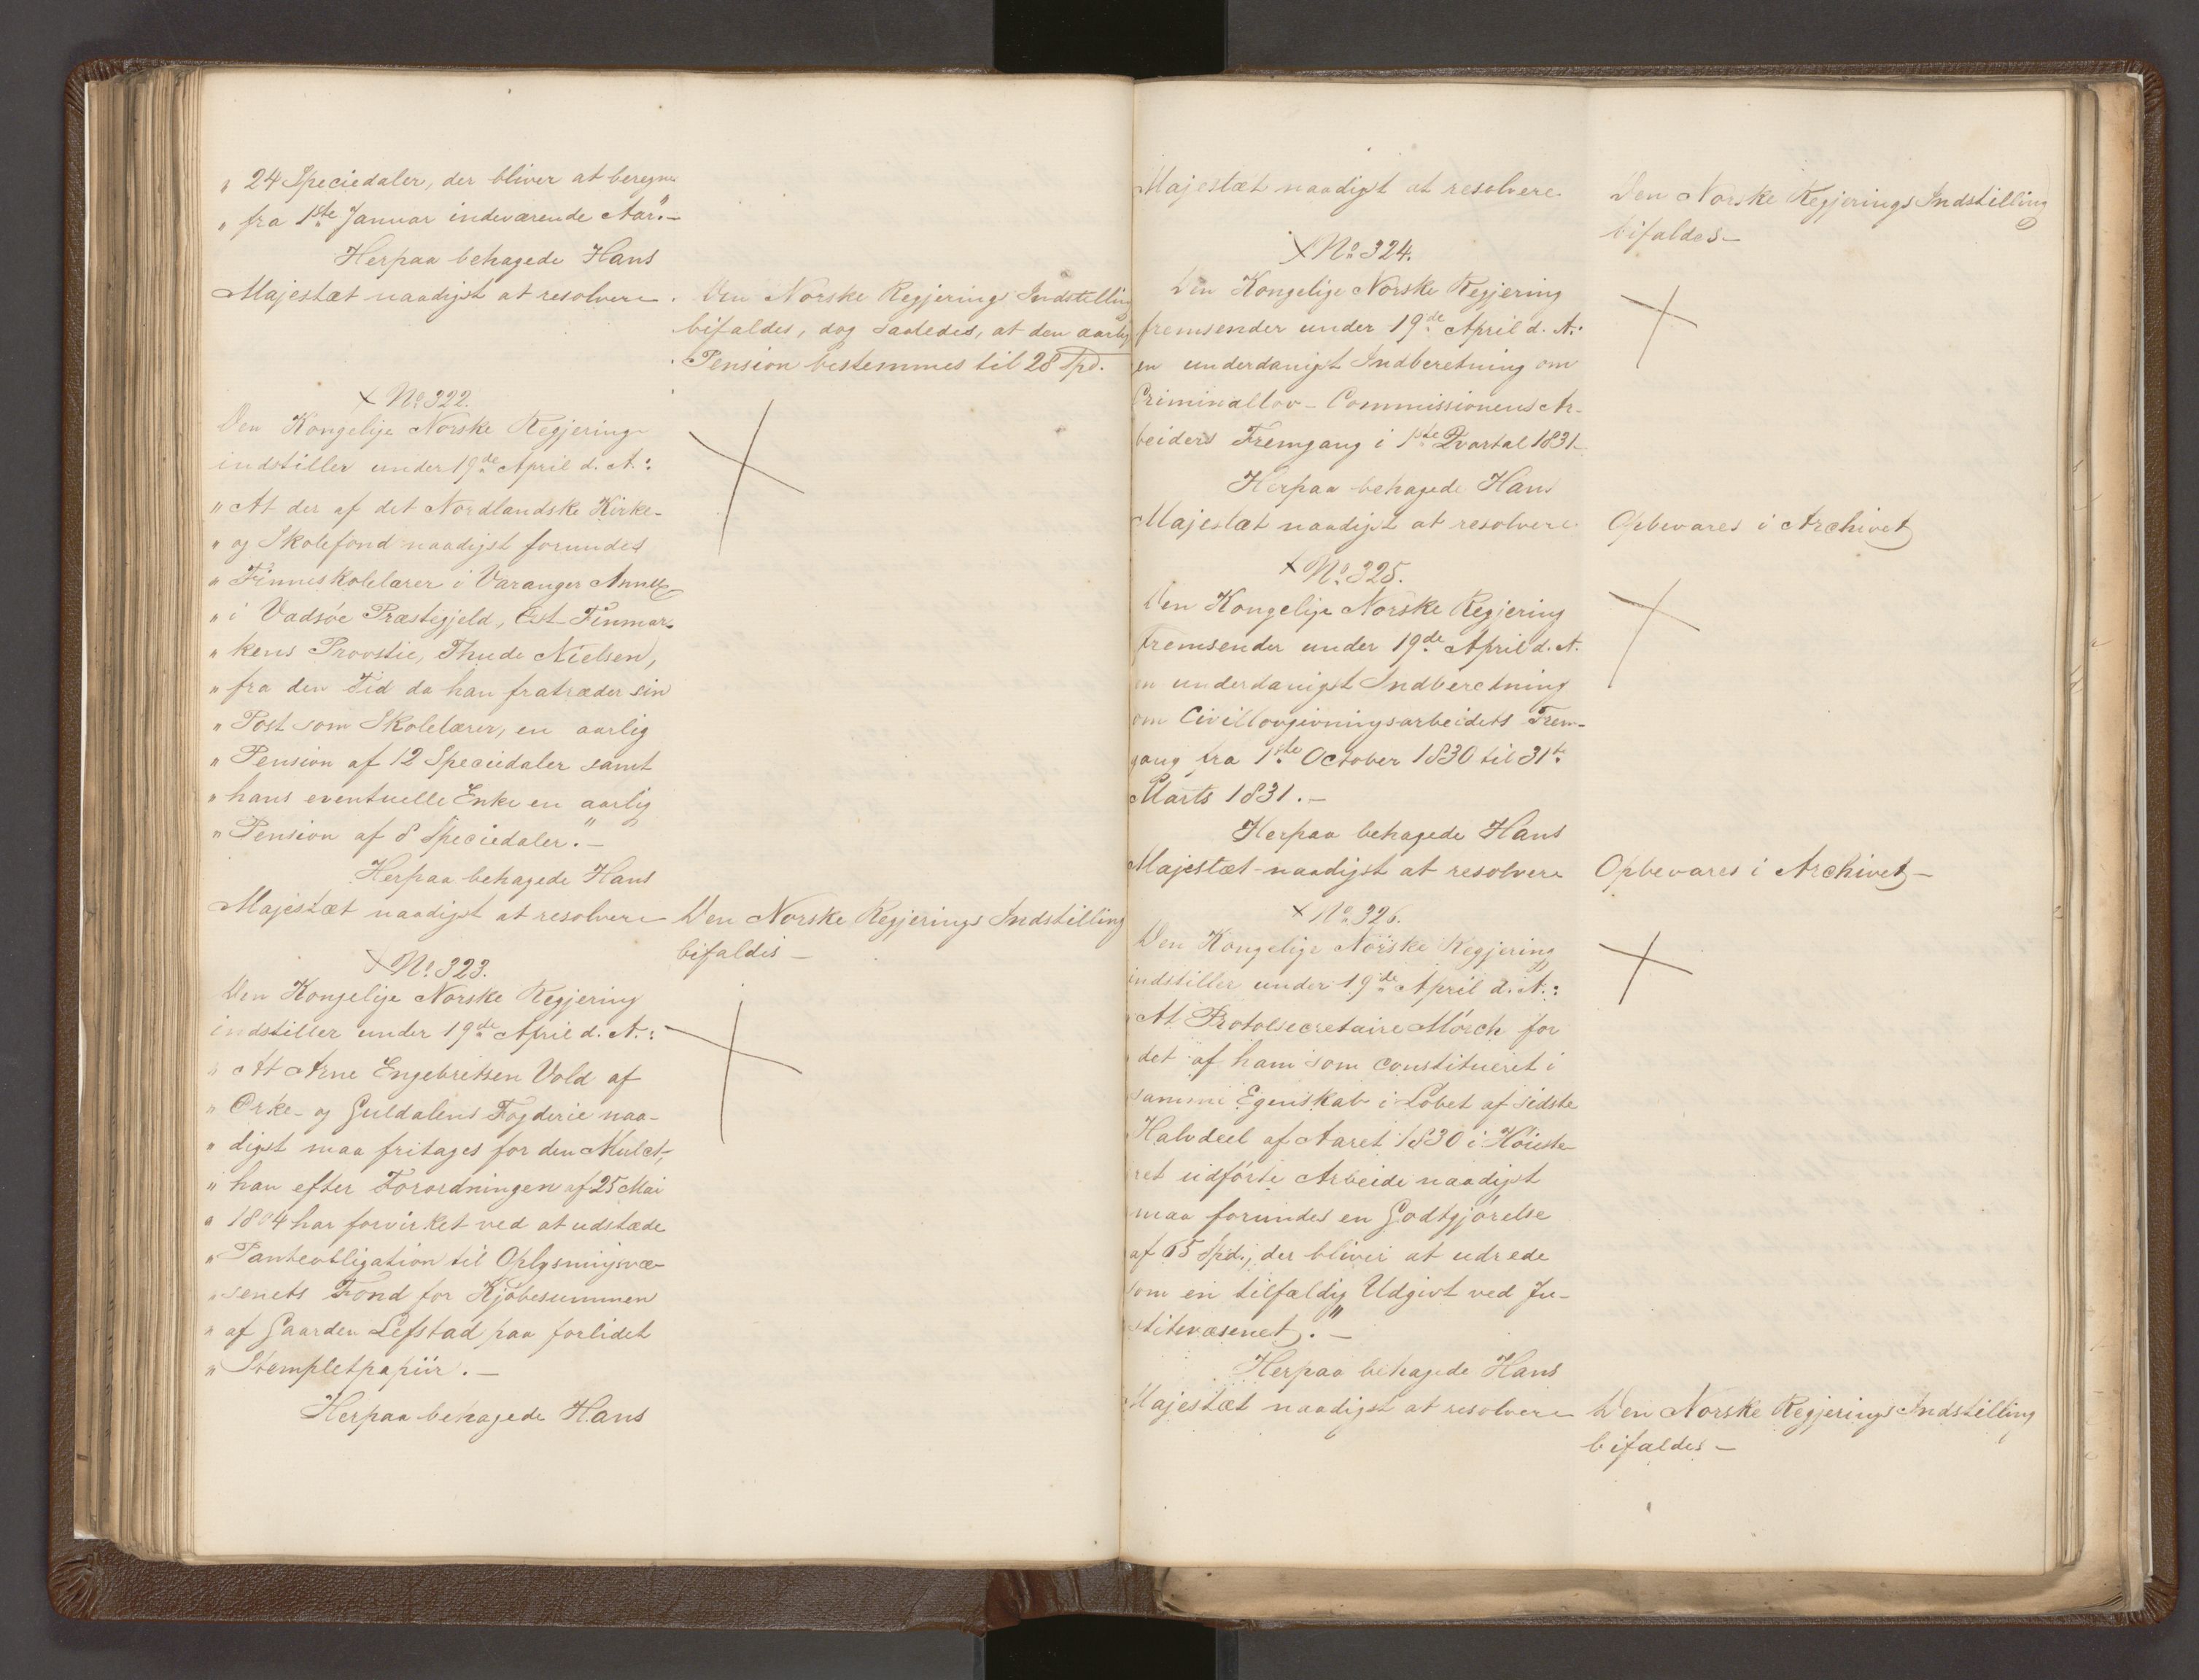 „ 24 Speciedaler, der bliver at beregne
„ fra 1ste Januar indeværende Aar".—
Herpaa behagede Hans
Majestæt naadigst at resolvere.
Den Norske Regjerings Indstilling
bifaldes, dog saaledes, at den aarlig
Pension bestemmes til 28 Spd.
No 322.
Den Kongelige Norske Regjering
indstiller under 19de April d. A.:
„ At der af det Nordlandske Kirke-
„ og Skolefond naadigst forundes
„ Finneskolelærer i Varanger Annex
„ i Vadsöe Præstegjeld, Øst-Finmar-
„ kens Provstie, Thude Nielsen,
„ fra den Tid da han fratræder sin
„ Post som Skolelærer, en aarlig
„ Pension af 12 Speciedaler samt
„ hans eventuelle Enke en aarlig
„ Pension af 8 Speciedaler".—
Herpaa behagede Hans
Majestæt naadigst at resolvere
Den Norske Regjerings Indstilling
bifaldes —
No 323.
Den Kongelige Norske Regjering
indstiller under 19de April d. A.:
„ At Arne Engebretsen Vold af
„ Orke- og Guldalens Fogderie naa-
„ digst maa fritages for den Mulct,
„ han efter Forordningen af 25 Mai
„ 1804 har forvirket ved at udstæde
„ Panteobligation til Oplysningsvæ-
„ senets Fond for Kjöbesummen
„ af Gaarden Lefstad paa forlidet
„ Stempletpapiir.—
Herpaa behagede Hans
Majestæt naadigst at resolvere
Den Norske Regjerings Indstilling
bifaldes —
No 324.
Den Kongelige Norske Regjering
fremsender under 19de April d. A.
en underdanigst Indberetning om
Criminallov-Commissionens Ar-
beiders Fremgang i 1ste Qvartal 1831—
Herpaa behagede Hans
Majestæt naadigst at resolvere
Opbevares i Archivet
No 325.
Den Kongelige Norske Regjering
fremsender under 19de April d. A.
en underdanigst Indberetning
om Civillovgivningsarbeidets Frem-
gang fra 1ste October 1830 til 31te
Marts 1831.—
Herpaa behagede Hans
Majestæt naadigst at resolvere
Opbevares i Archivet —
No 326.
Den Kongelige Norske Regjering
indstiller under 19de April d. A.:
„ At Protolsecretaire Mörch for
„ det af ham som constitueret i
samme Egenskab i Löbet af sidste
Halvdeel af Aaret 1830 i Höieste-
ret udförte Arbeide naadigst
maa forundes en Godtgjörelse
af 65 Spd., der bliver at udrede
som en tilfældig Udgivt ved Ju-
stitsvæsenet".—
Herpaa behagede Hans
Majestæt naadigst at resolvere
Den Norske Regjerings Indstilling
bifaldes —